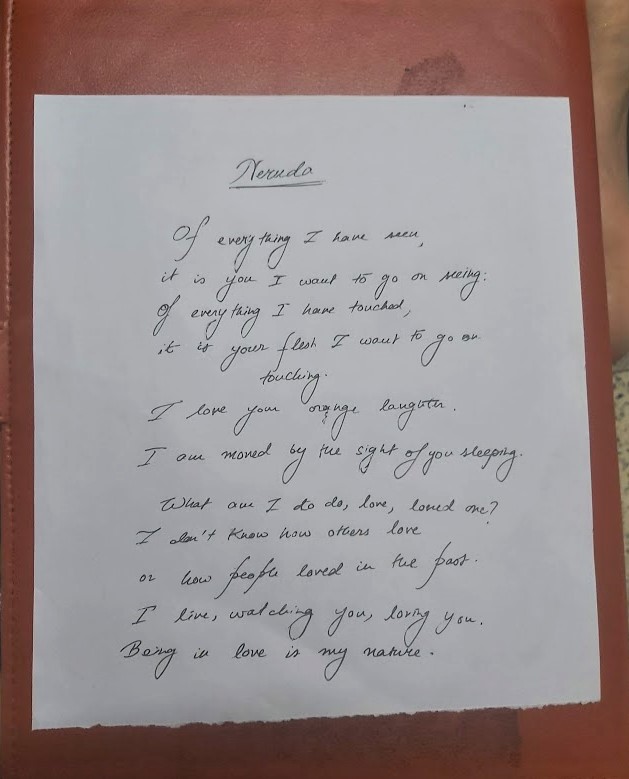 Neruda
Of everything I have seen,
it is you I want to go on seing:
Of everything I have touched,
it is your flesh I want to go on
touching.
I love your orange laughter.
I am moved by the sight of you sleeping.
What am I to do, love, loved one?
I don't know how others love
or how people loved in the past.
I live, watching you, loving you.
Being in love is my nature.